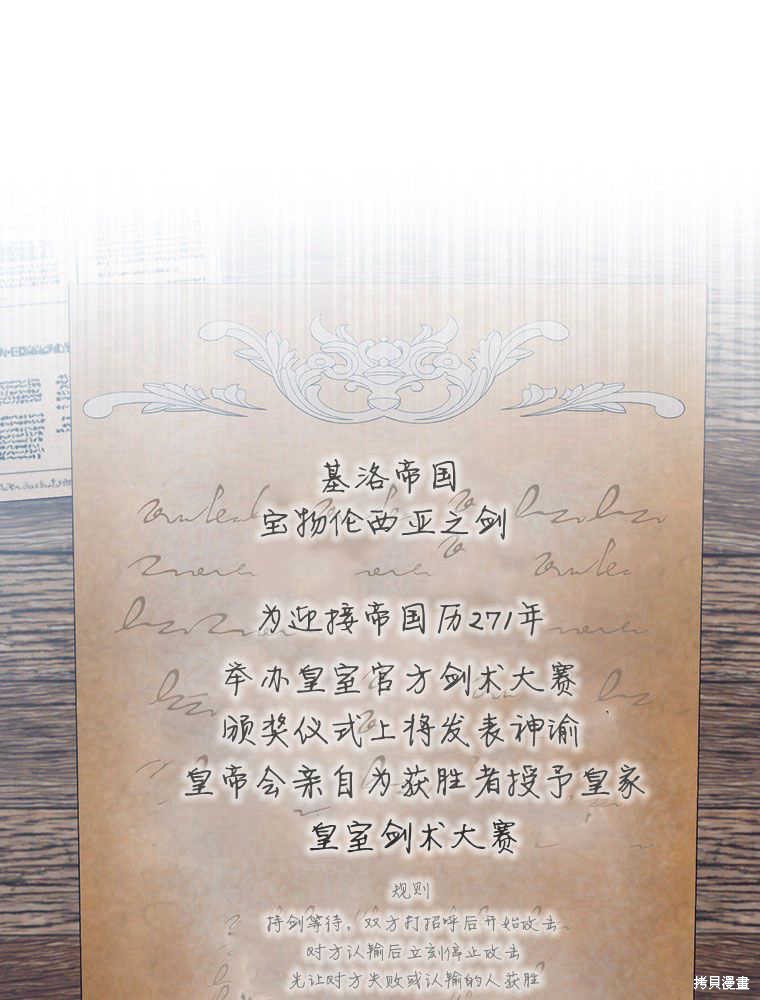 基洛帝国
宝物伦西亚之剑
为迎接帝国历271年
举办皇室官方剑术大赛
颁奖仪式上将发表神谕
皇帝会亲自为获胜者授予皇家
皇室剑术大赛
规则
持剑等待，双方打招呼后开始攻击
对方认输后立刻停止攻击
先让对方失败或认输的人获胜
拷貝漫畫